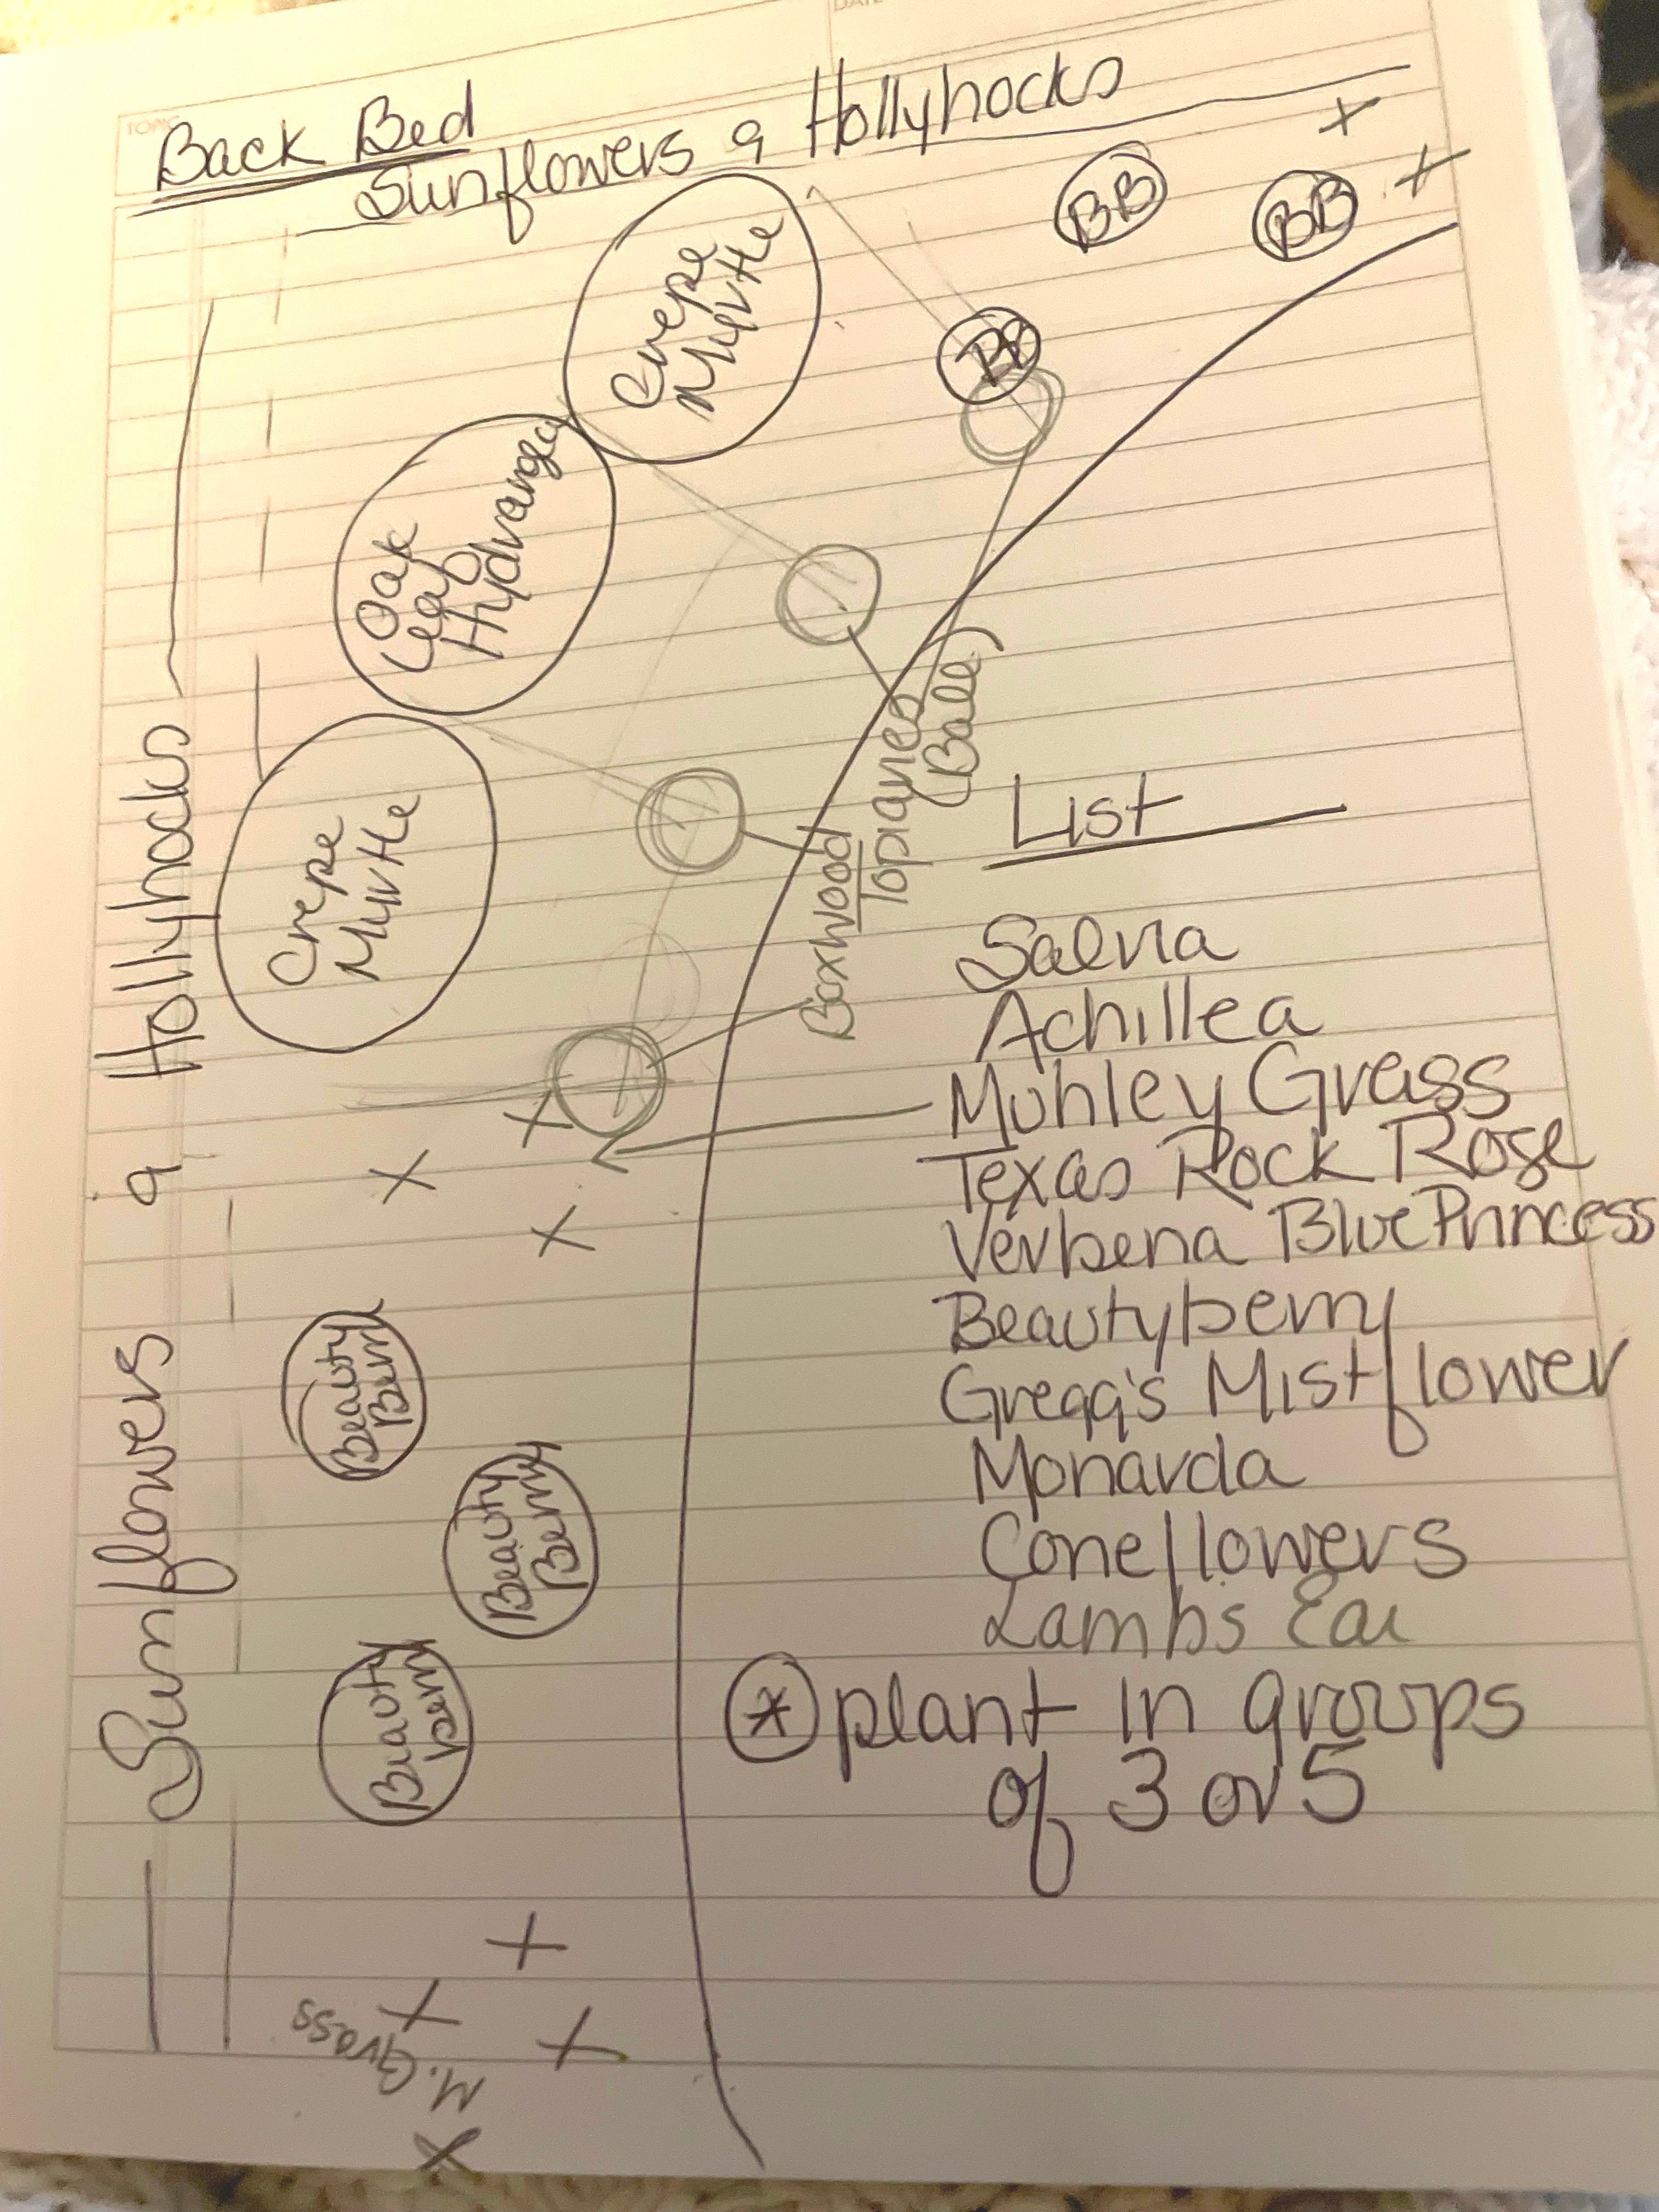 TOPIC
DATE
Back Bed
Sunflowers & Hollyhocks
Crepe
Myrtle
BB
BB
BB
Oak
Leaf
Hydrangea
Crepe
Myrtle
Sunflowers & Hollyhocks
Boxwood
Topiaries
(Ball)
List
Salvia
Achillea
Muhley Grass
Texas Rock Rose
Verbena Blue Princess
Beautyberry
Gregg's Mistflower
Monarda
Coneflowers
Lambs Ear
* plant in groups
of 3 or 5
Beauty
Berry
Beauty
Berry
Beauty
berry
M. Grass